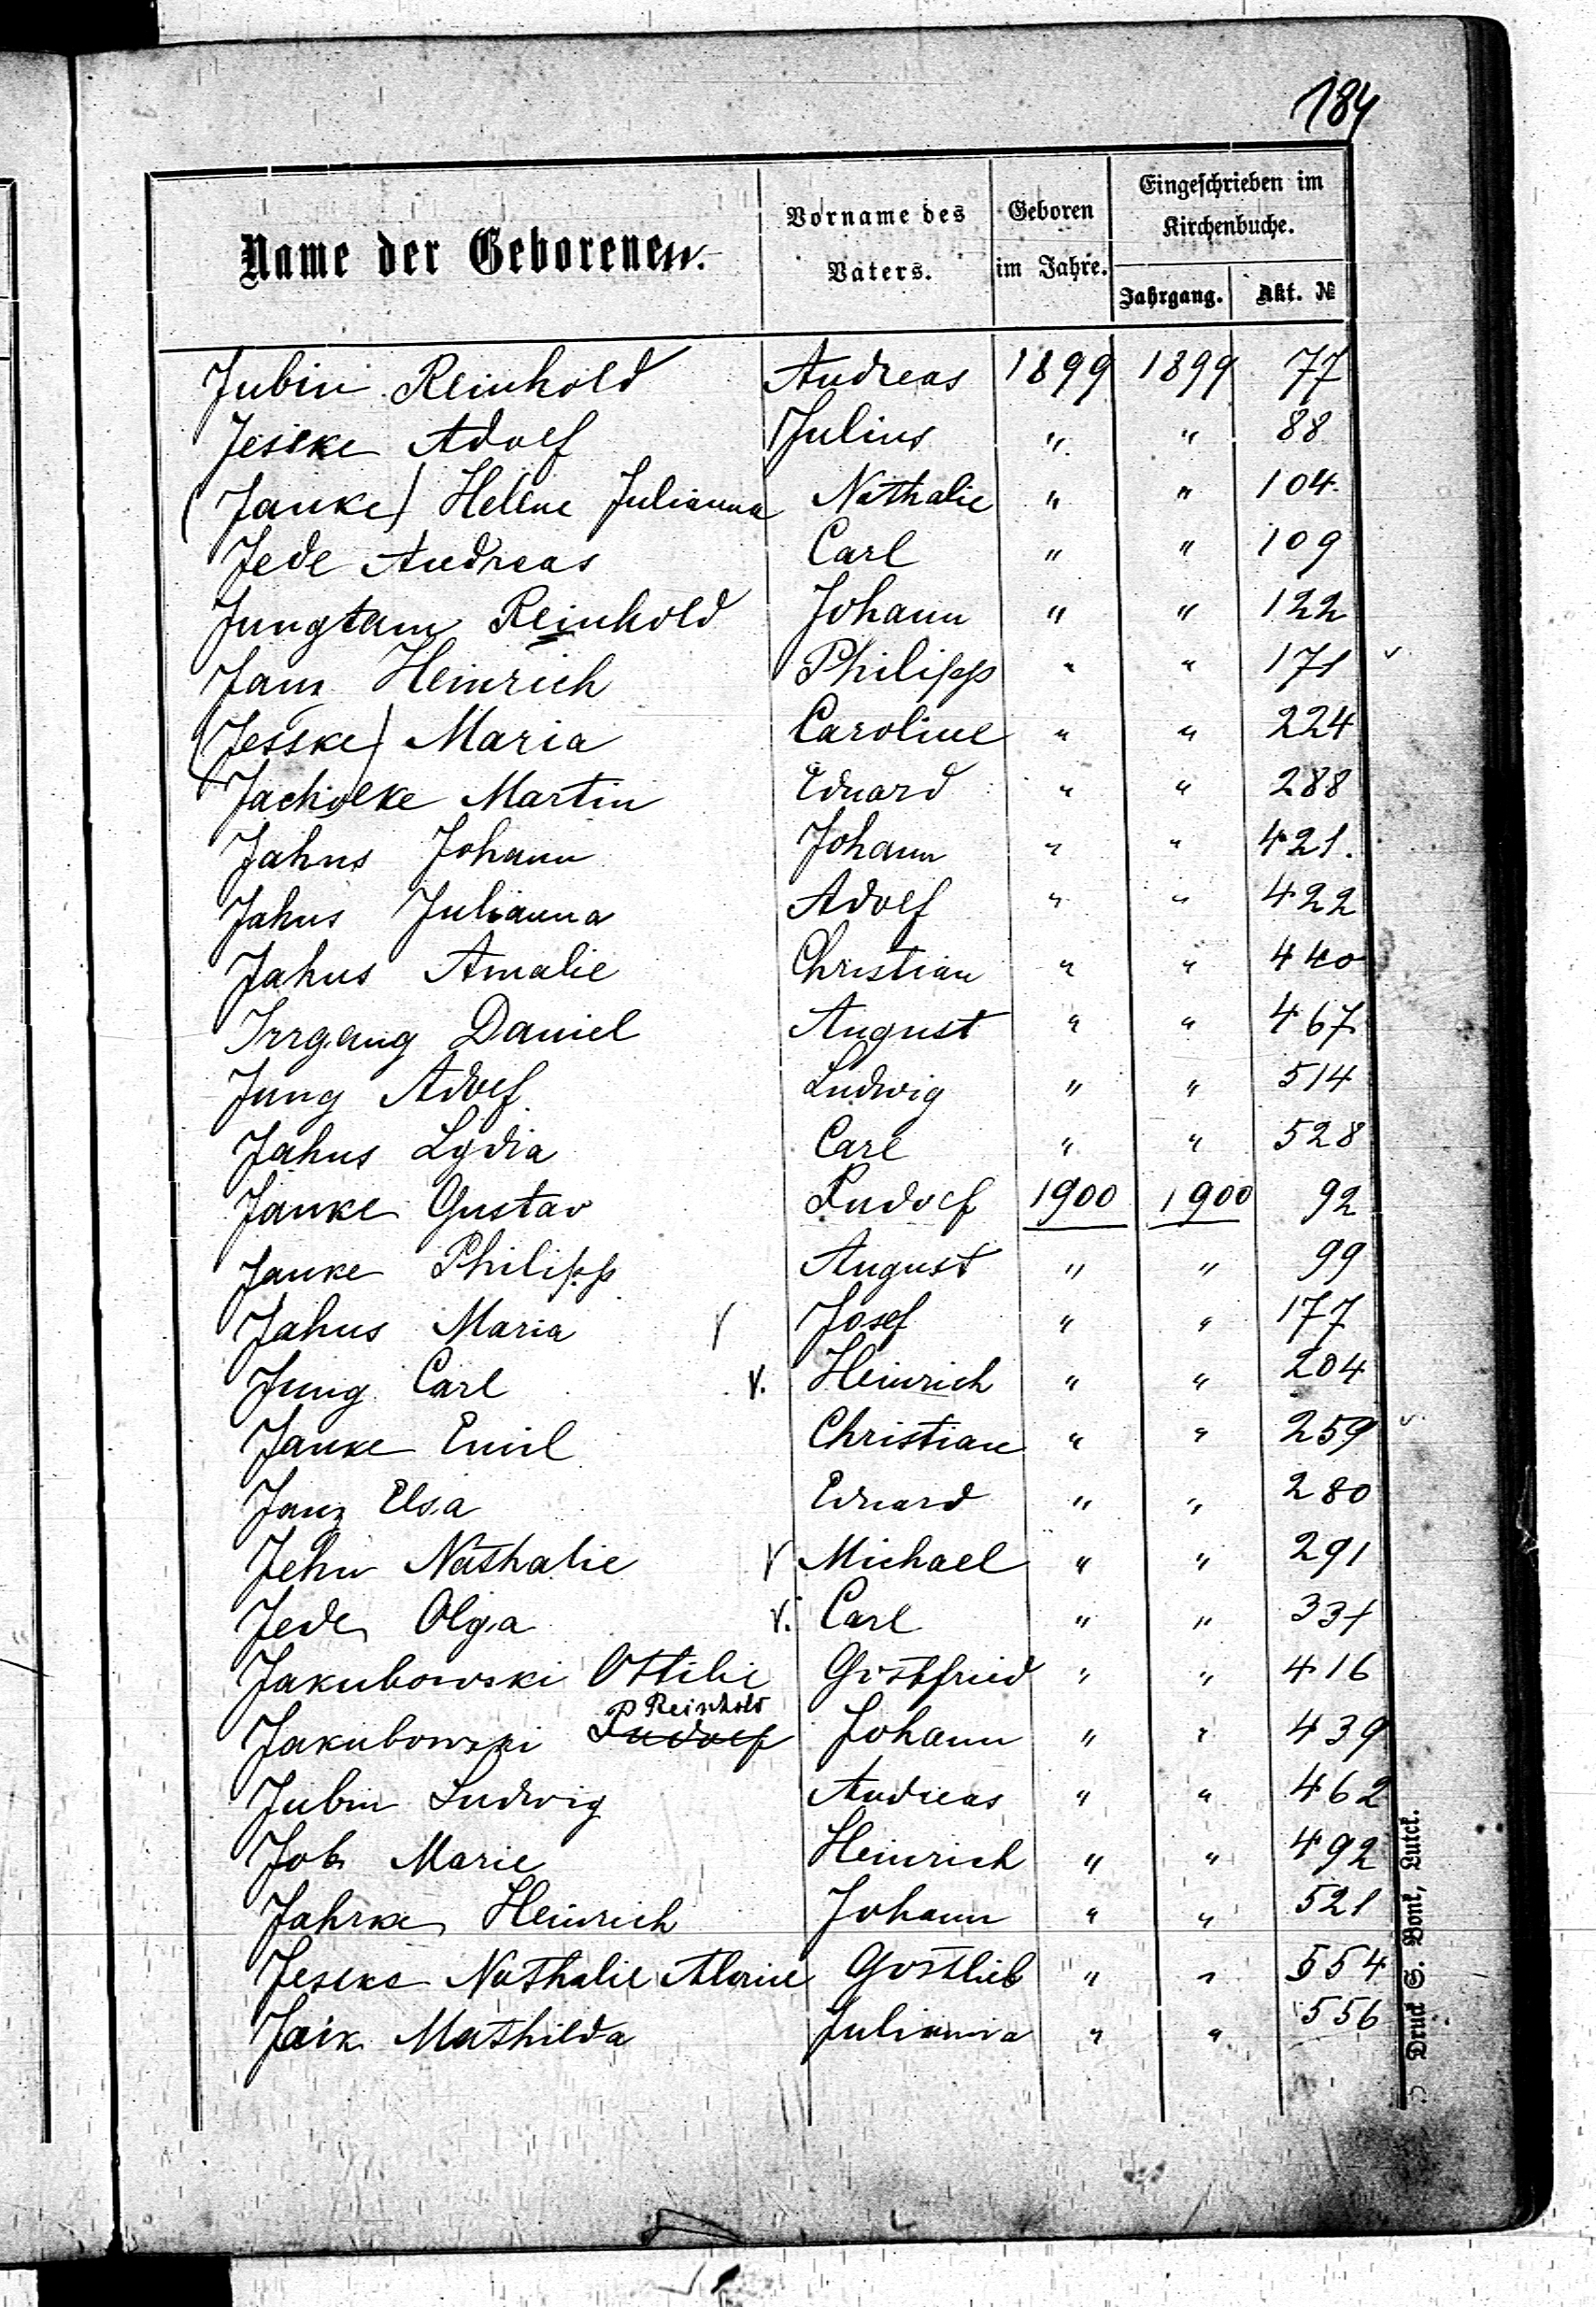 184
Name der Geborenen.
Vorname des Vaters.
Geboren im Jahre.
Eingeschrieben im Kirchenbuche.
Jahrgang.
Akt. №
Jubin Reinhold Andreas 1899 1899 77
Jeske Adolf Julius " " 88
(Janke) Helene Julianna Nathalie " " 104.
Jede Andreas Carl " " 109
Jungtam Reinhold Johann " " 122
Janz Heinrich Philipp " " 171 v
(Jesske) Maria Caroline " " 224
Martin Eduard " " 288
Jahns Johann Johann " " 421.
Jahns Julianna Adolf " " 422
Jahns Amalie Christian " " 440
Irrgang Daniel August " " 467
Jung Adolf Ludwig " " 514
Jahns Lydia Carl " " 528
Janke Gustav Rudolf 1900 1900 92
Janke Philipp August " " 99
Jahns Maria v Josef " " 177
Jung Carl v. Heinrich " " 204
Janke Emil Christian " " 259 v
Janz Elsa Eduard " " 280
Jehn Nathalie v Michael " " 291
Jede Olga v. Carl " " 331
Jakubowski Ottilie Gottfried " " 416
Reinhold
Jakubowski Rudolf Johann " " 439
Jubin Ludwig Andreas " " 462
Job Marie Heinrich " " 492
Jahrke Heinrich Johann " " 521
Jeske Nathalie Gottlieb " " 554
Jaik Mathilda Julianna " " 556
Druck S. Bonk, Lutck.